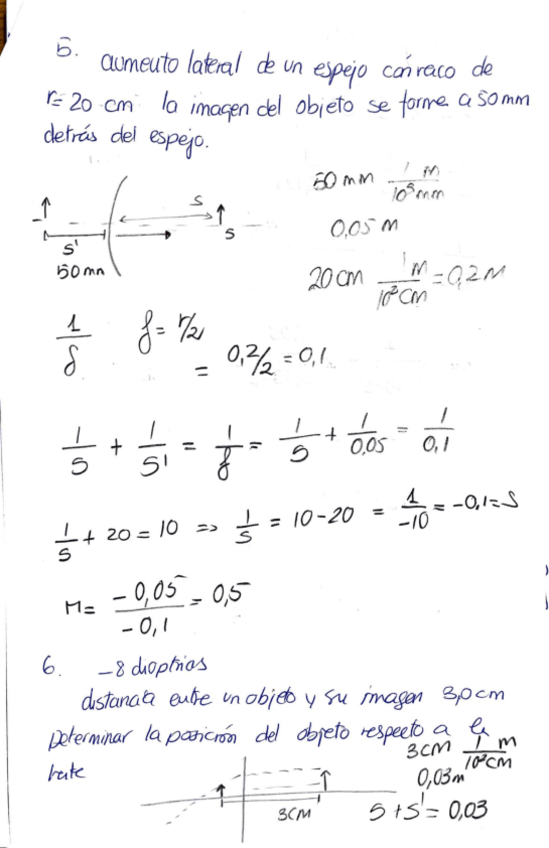 5. aumento lateral de un espejo cóncavo de
r= 20 cm la imagen del objeto se forme a 50mm
detrás del espejo.
50 mm 1 m / 10³ mm
S
S
S'
0,05 M
50mm
20 cm 1 M / 10² cm = 0,2 M
1/f f = r/2
= 0,2/2 = 0,1
1/S + 1/S' = 1/f = 1/S + 1/0,05 = 1/0,1
1/S + 20 = 10 => 1/S = 10-20 = 1/-10 = -0,1 = S
M= -0,05/-0,1 = 0,5
6. -8 dioptrias
distancia entre un objeto y su imagen 3,0cm
Determinar la posición del objeto respecto a la
lente
3CM 1 m / 10² CM
0,03m
3CM
S + S' = 0,03